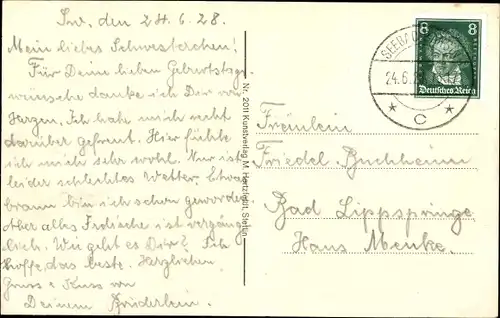 Sw. den 24.6.28.
Mein liebes Schwesterchen!
Für Deine lieben Geburtstags-
wünsche danke ich Dir von
Herzen. Ich hab mich recht
darüber gefreut. Hier fühle
ich mich sehr wohl. Nur ist
leider schlechtes Wetter. Etwas
braun bin ich schon geworden.
Aber alles Irdische ist vergäng-
lich. Wie geht es Dir? Ich
hoffe, das beste. Herzlichen
Gruss & Kuss von
Deinem Brüderlein.
Nr. 2011 Kunstverlag M. Hertzfeldt, Stettin
8 8
Deutsches Reich
SEEBAD
24.6.
* C *
Fräulein
Friedel Buchheim
Bad Lippspringe
Haus Menke.